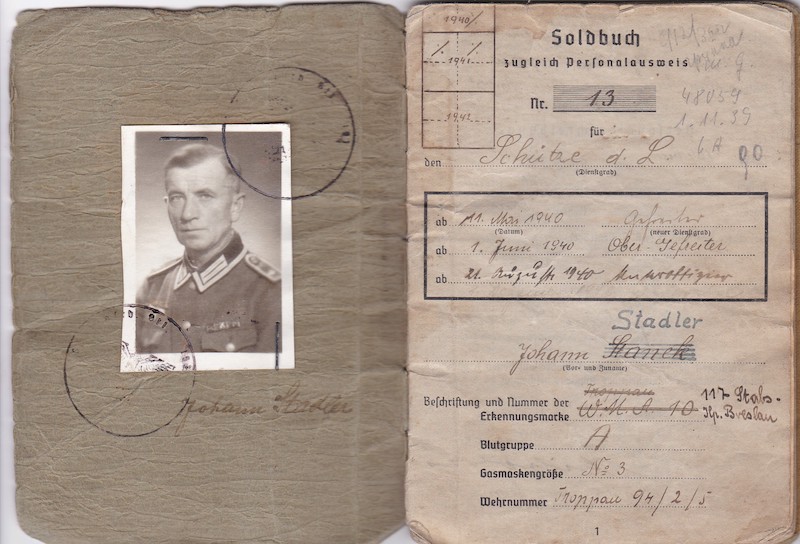 Johann Stadler
1940/
1941
1942
Soldbuch
zugleich Personalausweis
Nr. 13
48059
1.11.39
für
den Schütze d. L.
(Dienstgrad)
90
ab 11. Mai 1940 Gefreiter
(Datum) (neuer Dienstgrad)
ab 1. Juni 1940 Ober-Gefreiter
ab 21. August 1940 Unteroffizier
Stadler
Johann Stanek
(Vor- und Zuname)
Troppau
Beschriftung und Nummer der Erkennungsmarke W.M.A. 10 117 Stabs-
Kp. Breslau
Blutgruppe A
Gasmaskengröße No 3
Wehrnummer Troppau 94/2/5
1